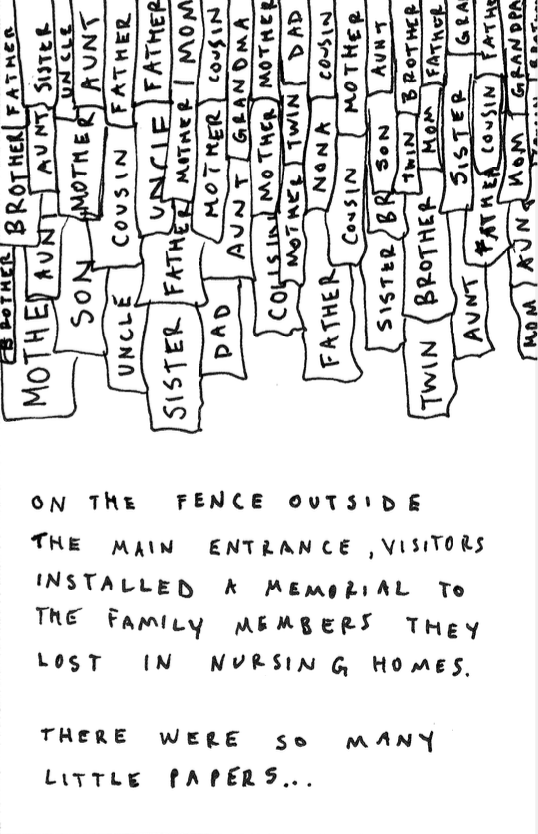 BROTHER
FATHER
BROTHER
MOTHER
SISTER
AUNT
AUNT
UNCLE
MOTHER
SON
AUNT
FATHER
COUSIN
UNCLE
FATHER
UNCLE
FATHER
SISTER
MOM
MOTHER
COUSIN
MOTHER
DAD
GRANDMA
AUNT
MOTHER
MOTHER
COUSIN
DAD
TWIN
MOTHER
COUSIN
NONA
FATHER
MOTHER
COUSIN
AUNT
SON
BR
SISTER
BROTHER
TWIN
BROTHER
TWIN
FATHER
MOM
GRA
SISTER
AUNT
FATHE
COUSIN
FATHER
GRANDPA
MOM
AUN
MOM
ON THE FENCE OUTSIDE
THE MAIN ENTRANCE, VISITORS
INSTALLED A MEMORIAL TO
THE FAMILY MEMBERS THEY
LOST IN NURSING HOMES.
THERE WERE SO MANY
LITTLE PAPERS...